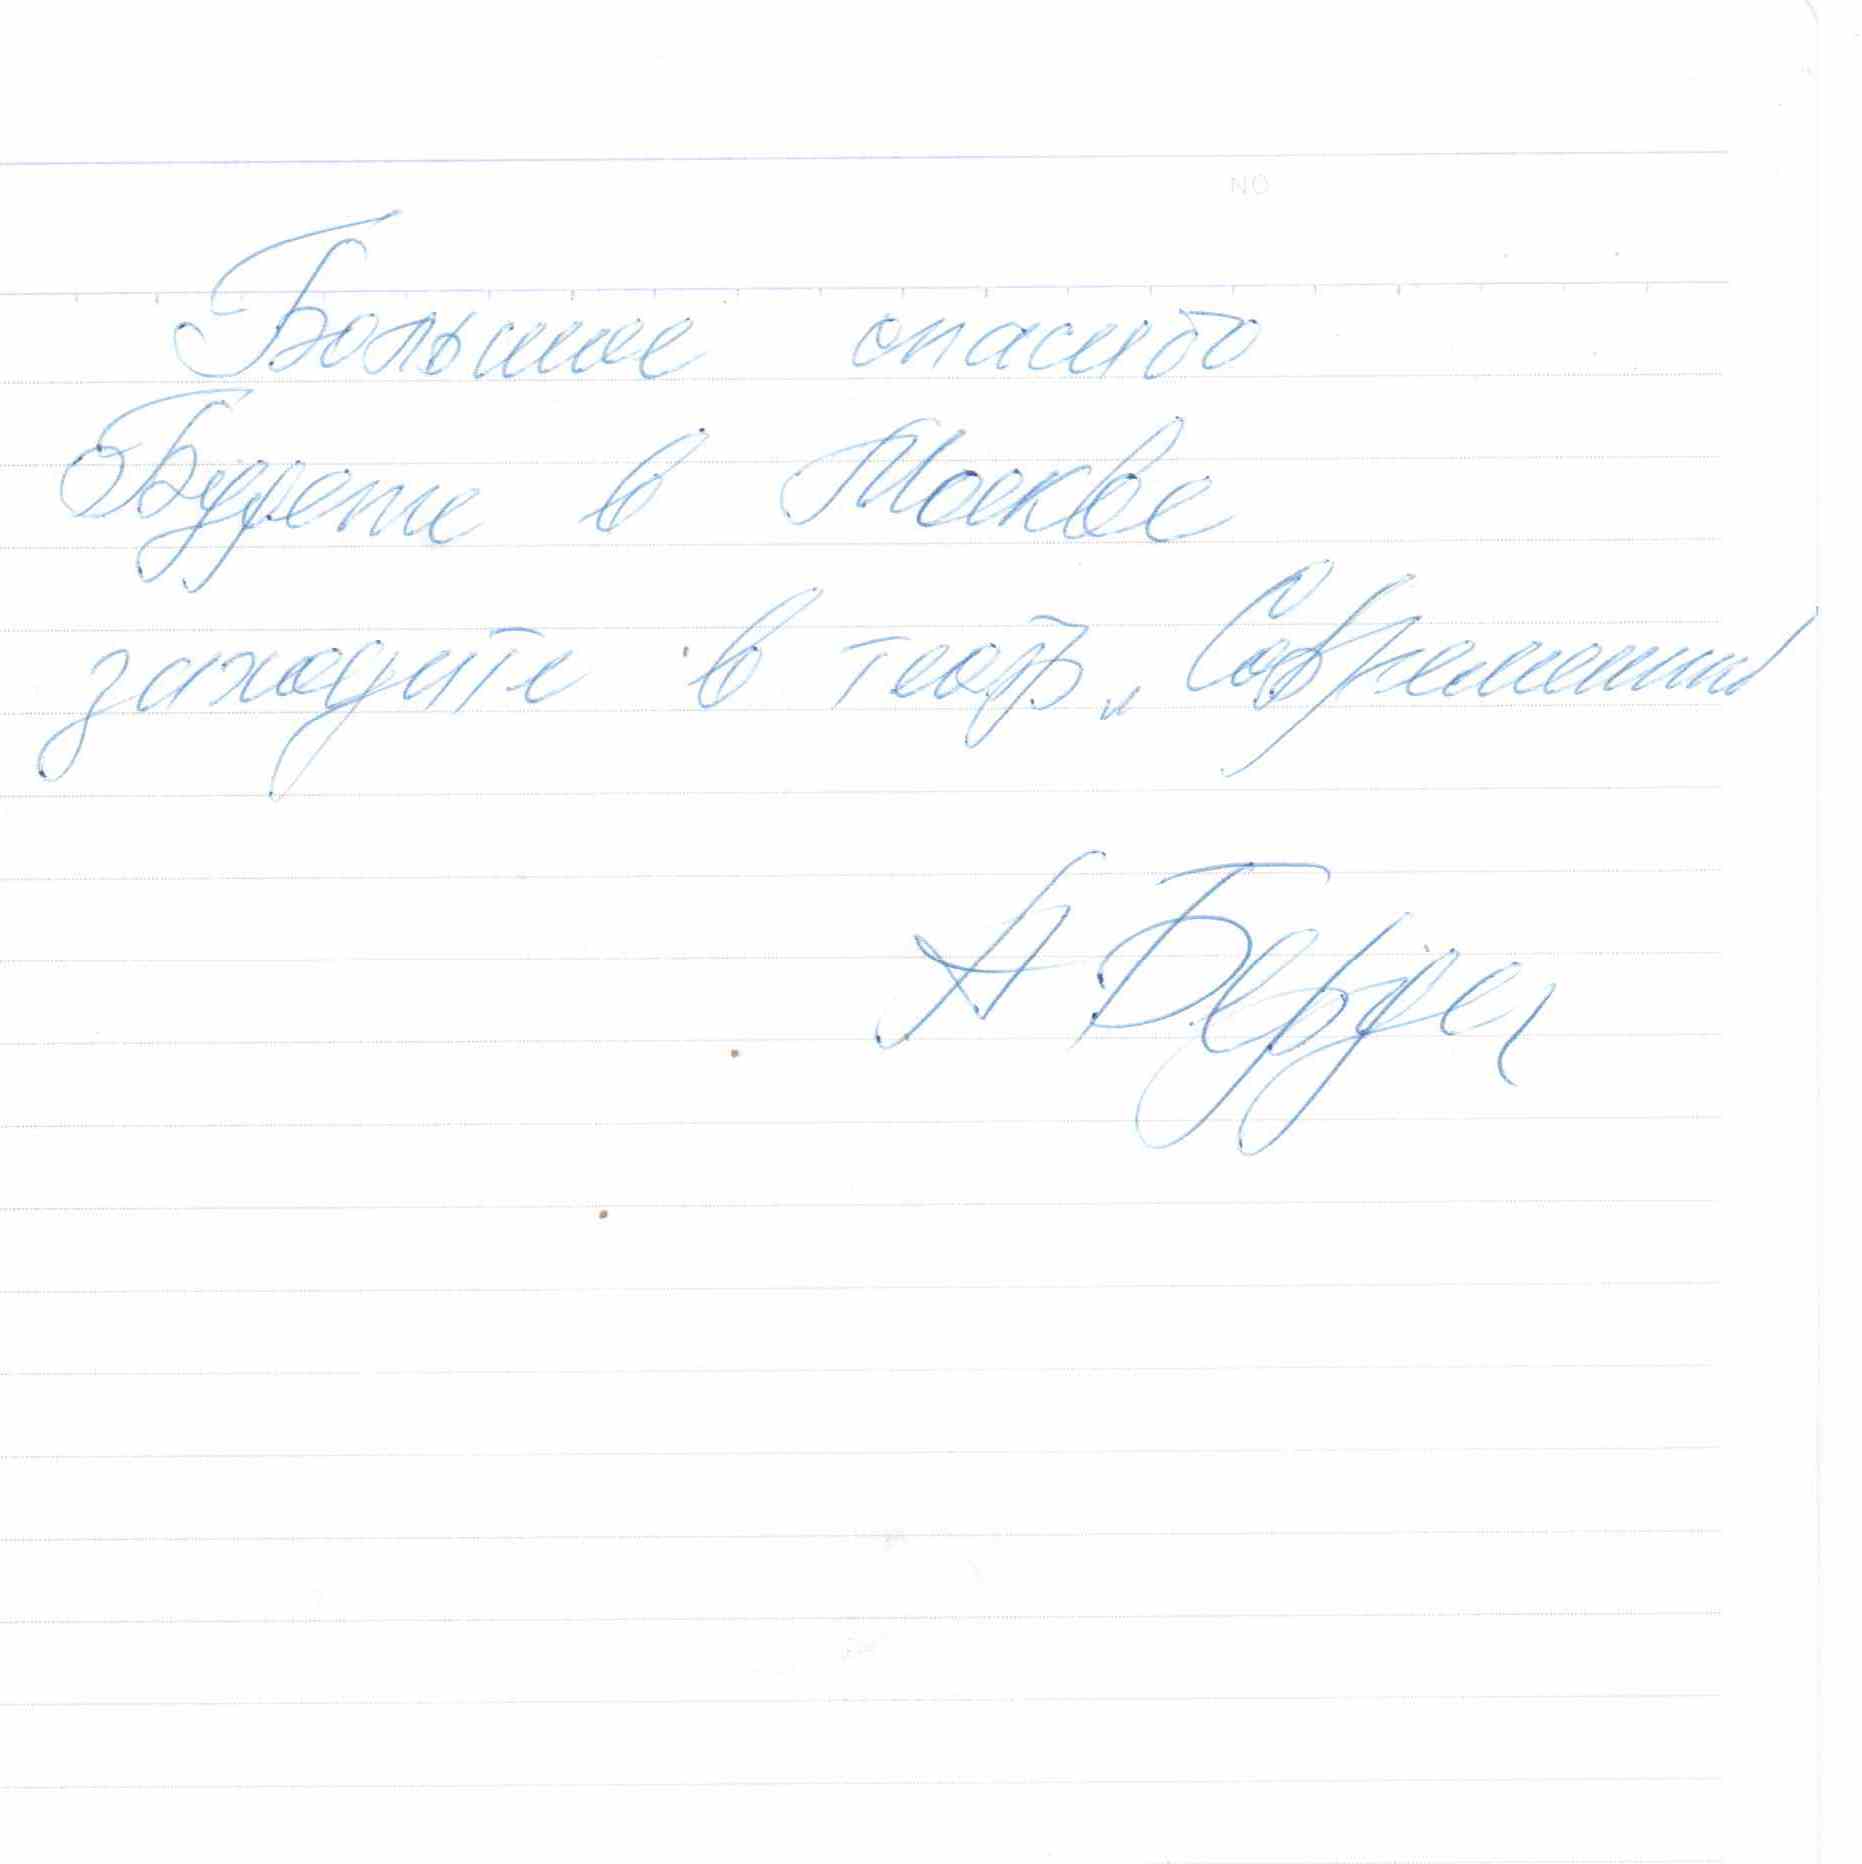 NO
Большое спасибо
Будете в Москве
заходите в театр „Современник